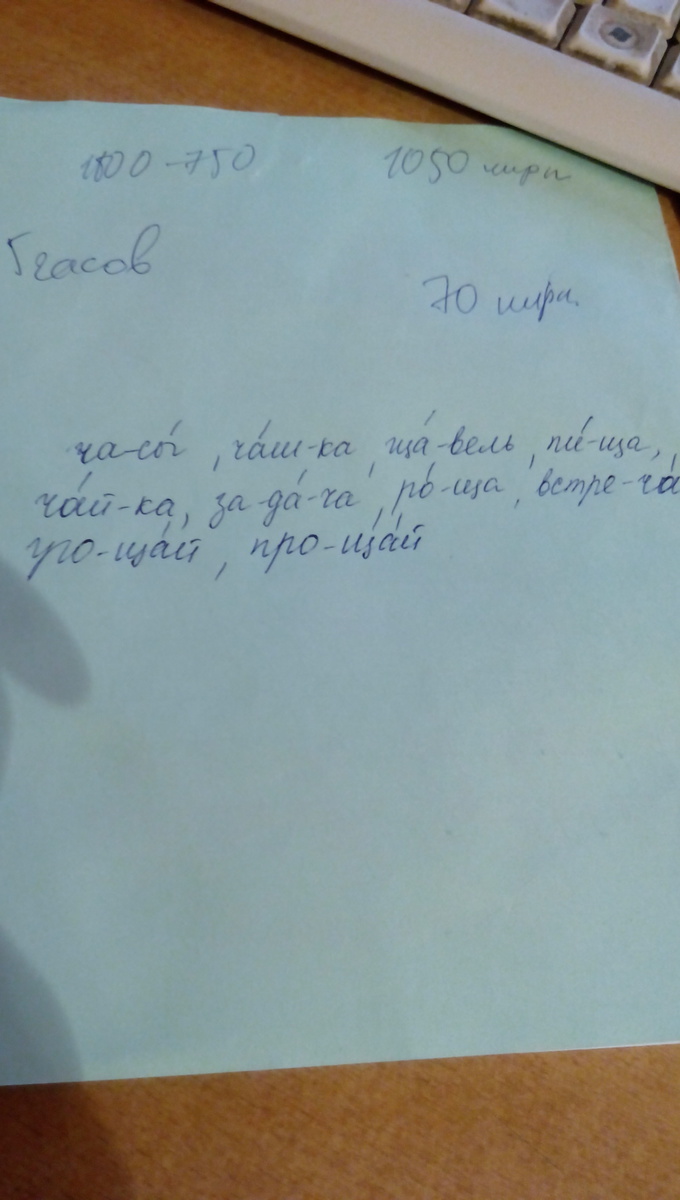 1800-750 1050 ширп.
5 часов
70 ширп.
ча-сы́, ча́ш-ка, ща́-вель, пи́-ща,
ча́й-ка, за-да́-ча, ро́-ща, встре-ча́
уго-ща́й, про-ща́й